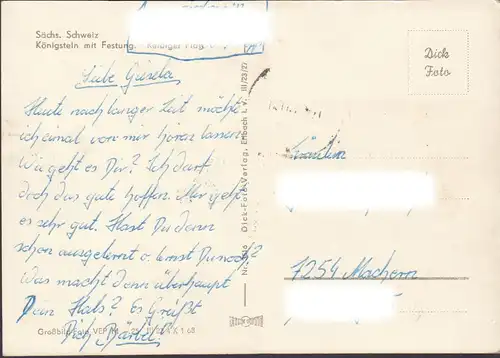 Sächs. Schweiz
Königstein mit Festung.
Liebe Gisela
Heute nach langer Zeit möcht
ich einmal von mir hören lassen.
Wie geht es Dir? Ich darf
doch das gute hoffen. Mir geht
es sehr gut. Hast Du denn
schon ausgelernt o. lernst Du noch?
Was macht denn überhaupt
Dein Hals? Es Grüßt
Dich Bärbel
Großbild-Foto
X 1 68
Dick-Foto-Verlag, Erlbach i. V. III/23/27
Dick
Foto
Fräulein
7254 Machern